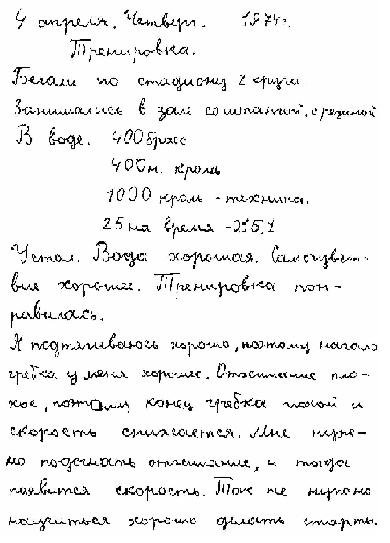 4 апреля. Четверг. 1974г.
Тренировка.
Бегали по стадиону 2 круга
Занимались в зале со штангой, с резиной
В воде. 400 брасс
400м. кроль
1000 кроль - техника.
25 на время -
Устал. Вода хорошая. Самочувст-
вие хорошее. Тренировка пон-
равилась.
Я подтягиваюсь хорошо, поэтому начало
гребка у меня хорошее. Отжимание пло-
хое, поэтому конец гребка плохой и
скорость снижается. Мне нуж-
но подогнать отжимание, и тогда
появится скорость. Так же нужно
научиться хорошо делать старты.